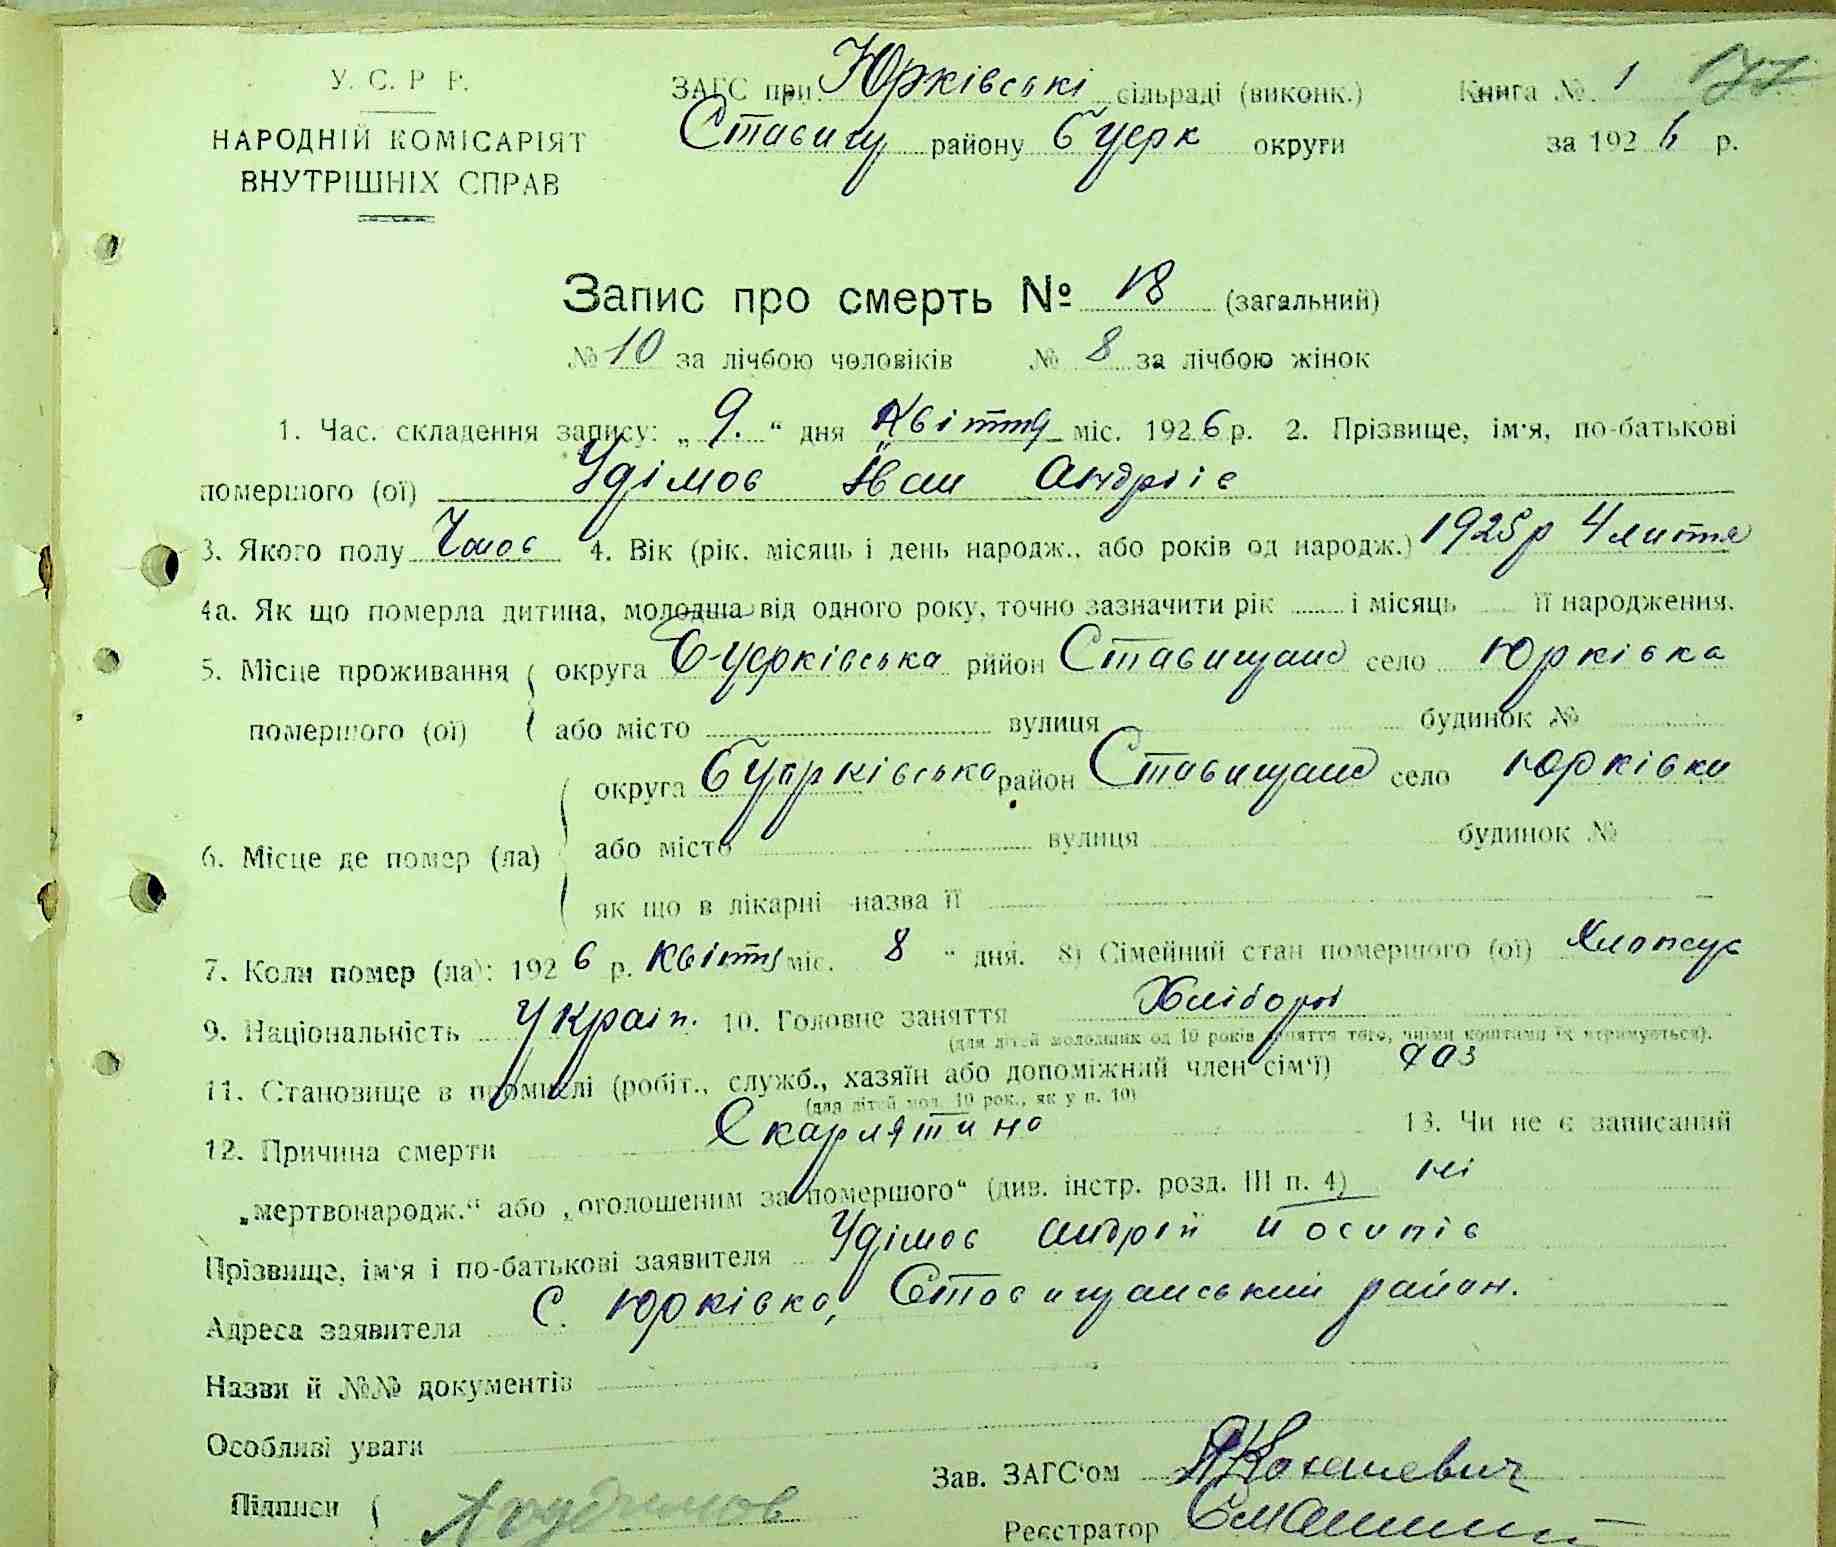 У. С. Р. Р.
НАРОДНІЙ КОМІСАРІЯТ
ВНУТРІШНІХ СПРАВ
ЗАГС при Юрківські сільраді (виконк.) Книга № 1
Ставищ району Б церк округи за 1926 р.
Запис про смерть № 18 (загальний)
№ 10 за лічбою чоловіків № 8 за лічбою жінок
1. Час. складення запису: „ 9. “ дня Квітня міс. 1926 р. 2. Прізвище, ім'я, по-батькові
помершого (ої) Удімов Іван Андріів
3. Якого полу Чолов 4. Вік (рік. місяць і день народж., або років од народж.) 1925р 4 лютня
4а. Як що померла дитина, молодша від одного року, точно зазначити рік і місяць її народження.
5. Місце проживання округа Б-церківська рййон Ставищанс село Юрківка
помершого (ої) або місто вулиця будинок №
округа Бцерківська район Ставищанс село Юрківка
6. Місце де помер (ла) або місто вулиця будинок №
як що в лікарні назва її
7. Коли помер (ла): 1926 р. Квітня міс. 8 “ дня. 8) Сімейний стан помершого (ої)
9. Національність Україн. 10. Головне заняття Хлібороб
(для дітей молодших од 10 років заняття того, чиїми коштами їх втримується).
11. Становище в промислі (робіт., служб., хазяїн або допоміжний член сім'ї)
(для дітей мол. 10 рок., як у п. 10)
12. Причина смерти Скарлятина 13. Чи не є записаний
„мертвонародж.“ або „оголошеним за помершого“ (див. інстр. розд. III п. 4) ні
Прізвище, ім'я і по-батькові заявителя Удімов Андрій Йосипів
Адреса заявителя С. Юрківка, Ставищанський район.
Назви й №№ документів
Особливі уваги
Зав. ЗАГС'ом
Підписи
Реєстратор